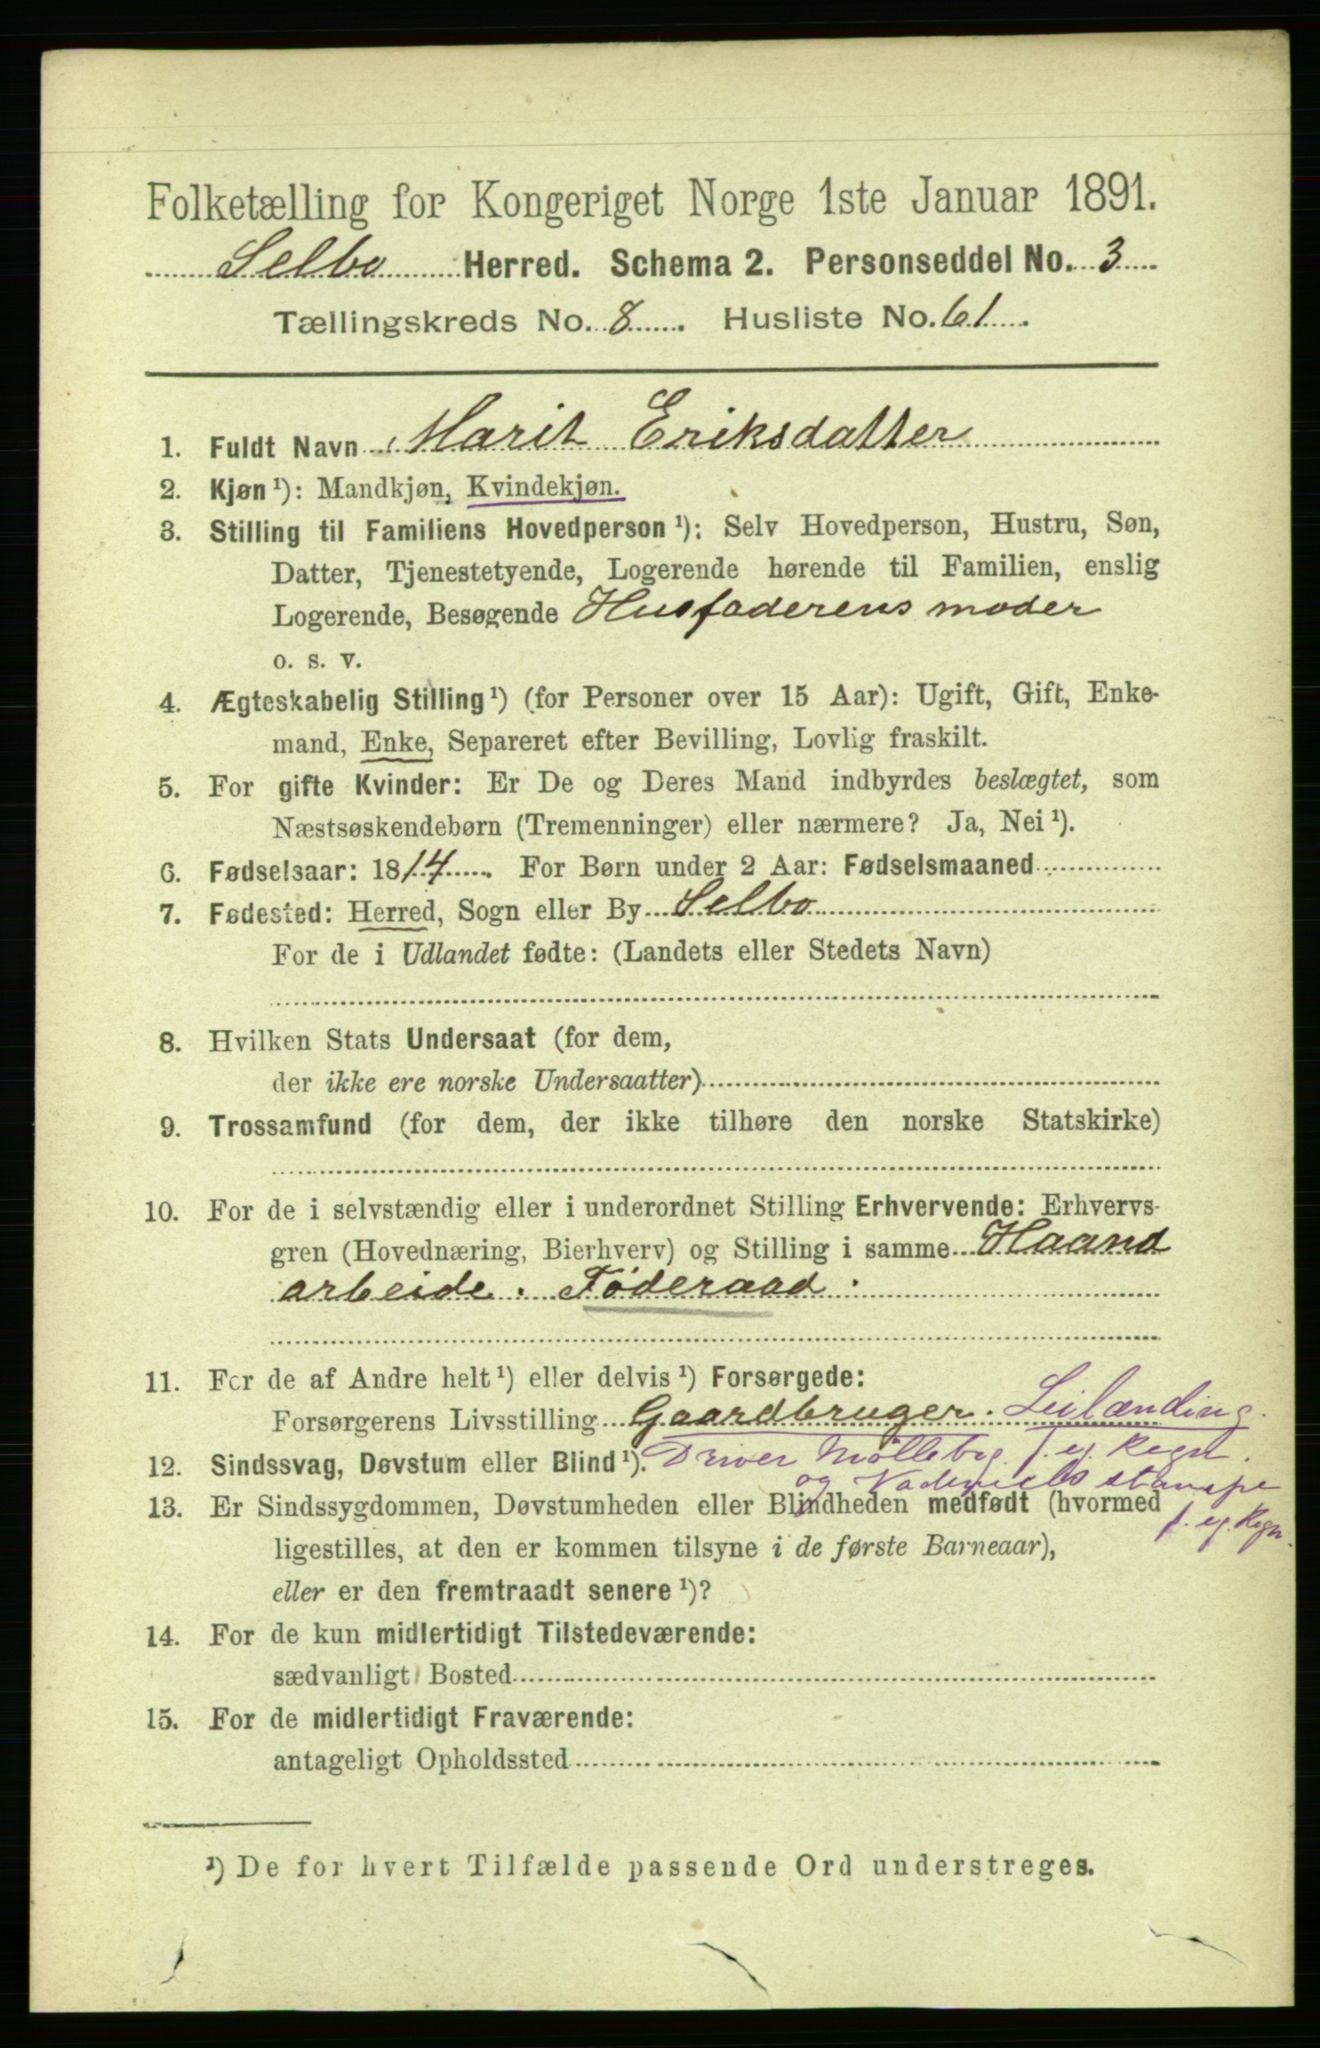 Folketælling for Kongeriget Norge 1ste Januar 1891.
Selbo Herred. Schema 2. Personseddel No. 3
Tællingskreds No. 8. Husliste No. 61.
1. Fuldt Navn Marit Eriksdatter
2. Kjøn ¹): Mandkjøn, Kvindekjøn.
3. Stilling til Familiens Hovedperson ¹): Selv Hovedperson, Hustru, Søn,
Datter, Tjenestetyende, Logerende hørende til Familien, enslig
Logerende, Besøgende Husfaderens moder
o. s. v.
4. Ægteskabelig Stilling ¹) (for Personer over 15 Aar): Ugift, Gift, Enke-
mand, Enke, Separeret efter Bevilling, Lovlig fraskilt.
5. For gifte Kvinder: Er De og Deres Mand indbyrdes beslægtet, som
Næstsøskendebørn (Tremenninger) eller nærmere? Ja, Nei ¹).
6. Fødselsaar: 1814. For Børn under 2 Aar: Fødselsmaaned
7. Fødested: Herred, Sogn eller By Selbo
For de i Udlandet fødte: (Landets eller Stedets Navn)
8. Hvilken Stats Undersaat (for dem,
der ikke ere norske Undersaatter)
9. Trossamfund (for dem, der ikke tilhøre den norske Statskirke)
10. For de i selvstændig eller i underordnet Stilling Erhvervende: Erhvervs-
gren (Hovednæring, Bierhverv) og Stilling i samme Haand
arbeide. Föderaad.
11. For de af Andre helt ¹) eller delvis ¹) Forsørgede:
Forsørgerens Livsstilling Gaardbruger. Leilænding.
12. Sindssvag, Døvstum eller Blind ¹). Driver Möllebrg f. eg. Regn.
og Vadmels stampe
13. Er Sindssygdommen, Døvstumheden eller Blindheden medfødt (hvormed
f. eg. Regn.
ligestilles, at den er kommen tilsyne i de første Barneaar),
eller er den fremtraadt senere ¹)?
14. For de kun midlertidigt Tilstedeværende:
sædvanligt Bosted
15. For de midlertidigt Fraværende:
antageligt Opholdssted
¹) De for hvert Tilfælde passende Ord understreges.